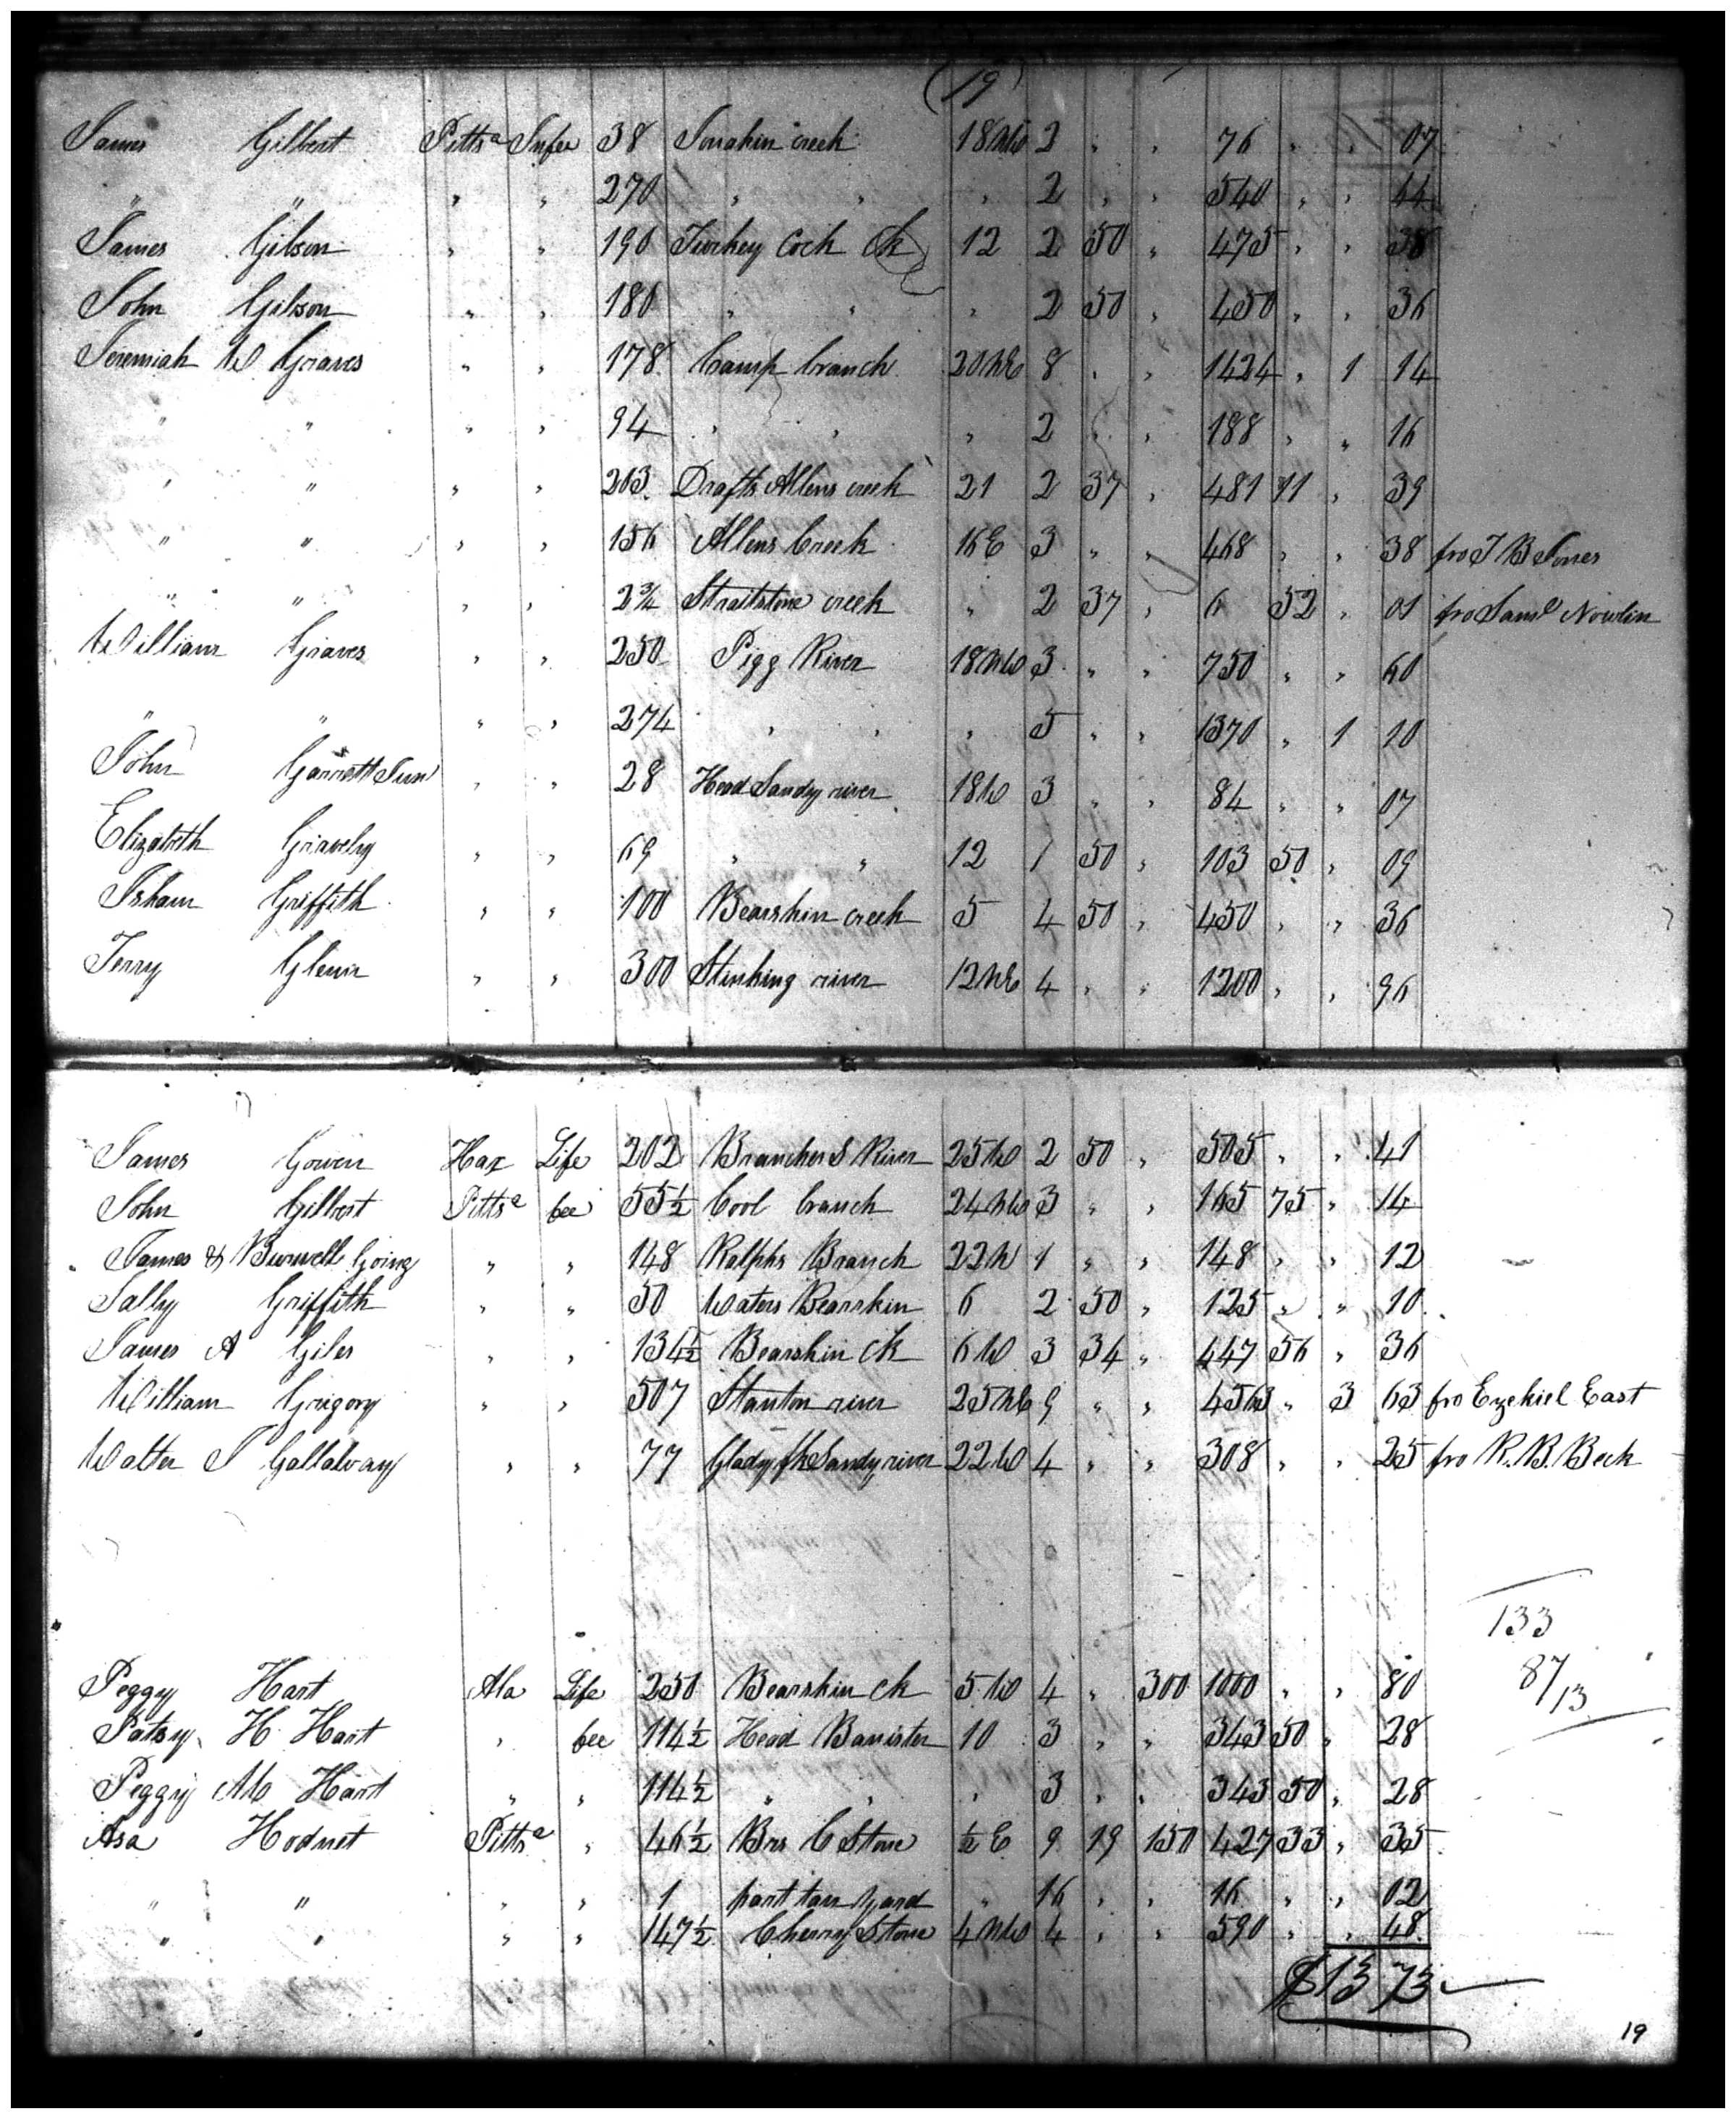 (19)
James Gilbert Pittsa Infee 38 creek 18 NW 2 " " 76 " " 07
" " " " 270 " " " 2 " " 540 " " 44
James Gibson " " 190 Turkey Cock Ck 12 2 50 " 475 " " 38
John Gibson " " 180 " " " 2 50 " 450 " " 36
Jeremiah W Graves " " 178 Camp branch 20 NE 8 " " 1424 " 1 14
" " " " 94 " " " 2 " " 188 " " 16
" " " " 203 Drafts Allens creek 21 2 37 " 481 11 " 39
" " " " 156 Allens Creek 16 E 3 " " 468 " " 38 fro T B Jones
" " " " 2¾ Straitstone creek " 2 37 " 6 52 " 01 fro Saml Nowlin
William Graves " " 250 Pigg River 18 NW 3 " " 750 " " 60
" " " " 274 " " " 5 " " 1370 " 1 10
John Garrett Sen " " 28 Head Sandy river 18 W 3 " " 84 " " 07
Elizabeth Gravely " " 69 " " 12 1 50 " 103 50 " 09
Isham Griffith " " 100 Bearskin creek 5 4 50 " 450 " " 36
Terry Glenn " " 300 Stinking river 12 NE 4 " " 1200 " " 96
James Gowen Hax Life 202 Branches S River 25 W 2 50 " 505 " " 41
John Gilbert Pittsa fee 55½ Cool branch 24 NW 3 " " 165 75 " 14
James & Burwell Going " " 148 Ralphs Branch 22 W 1 " " 148 " " 12
Sally Griffith " " 50 Waters Bearskin 6 2 50 " 125 " " 10
James A Giles " " 134½ Bearskin ck 6 W 3 34 " 447 56 " 36
William Gregory " " 507 Stanton river 25 NE 9 " " 4563 " 3 63 fro Ezekiel East
Walter S Gallaway " " 77 Glady fk Sandy river 22 W 4 " " 308 " " 25 fro R. B. Beck
133
87/13
Peggy Hart Ala Life 250 Bearskin ck 5 W 4 " 300 1000 " " 80
Patsy H Hart " fee 114½ Head Banister 10 3 " " 343 50 " 28
Peggy M Hart " " 114½ " " " 3 " " 343 50 " 28
Asa Hodnet Pittsa " 46½ Brs C Stone ½ E 9 19 150 427 33 " 35
" " " " 1 part tan yard " 16 " " 16 " " 02
" " " " 147½ Cherry Stone 4 NW 4 " " 590 " " 48
$13 73
19